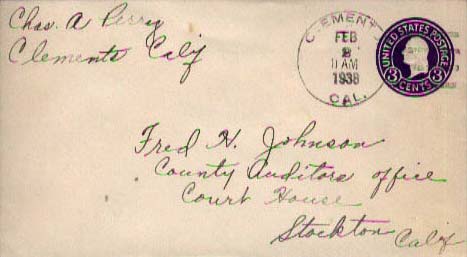 Chas. A Perry
Clements Calif
CLEMENTS
FEB
2
11 AM
1938
CAL.
UNITED STATES POSTAGE
3 CENTS 3
Fred H. Johnson
County Auditors office
Court House
Stockton Calif